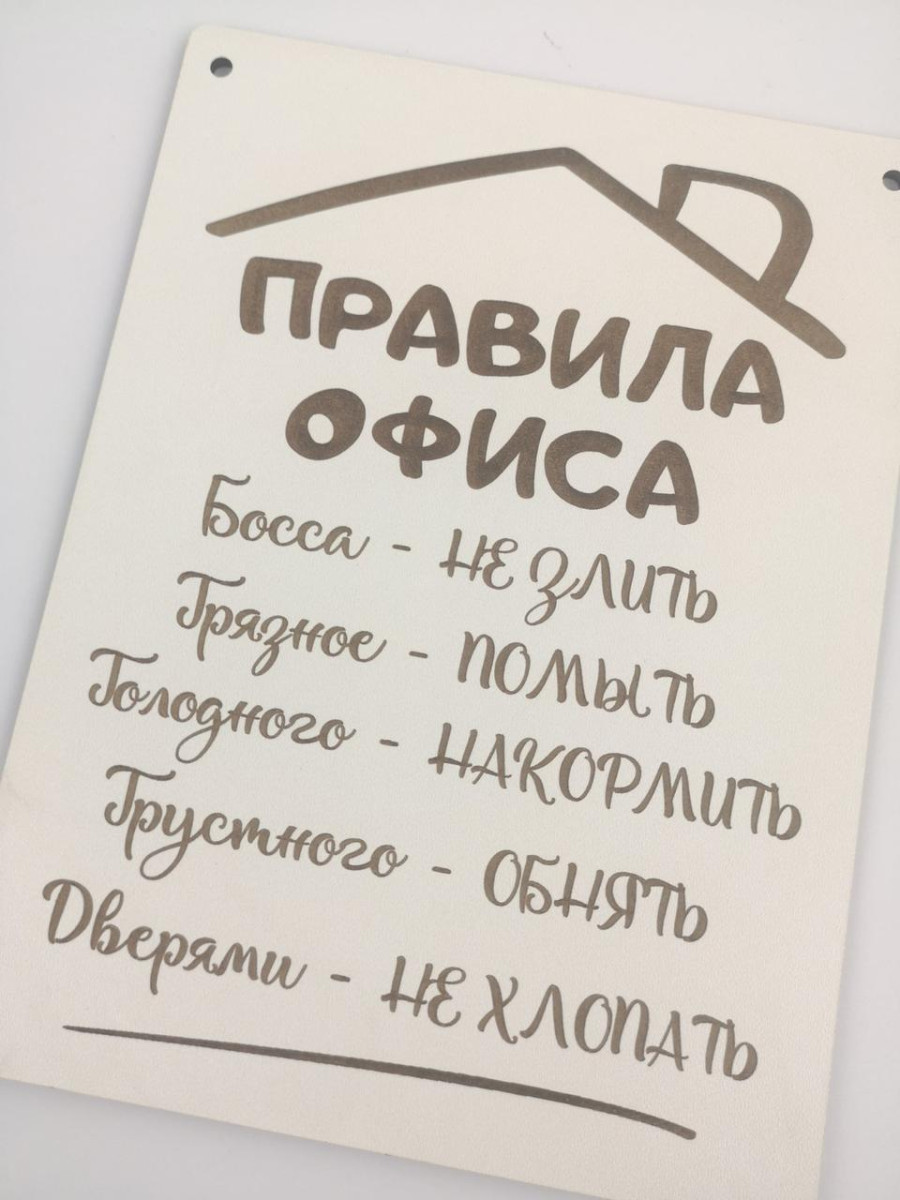 ПРАВИЛА
ОФИСА
Босса - НЕ ЗЛИТЬ
Грязное - ПОМЫТЬ
Голодного - НАКОРМИТЬ
Грустного - ОБНЯТЬ
Дверями - НЕ ХЛОПАТЬ